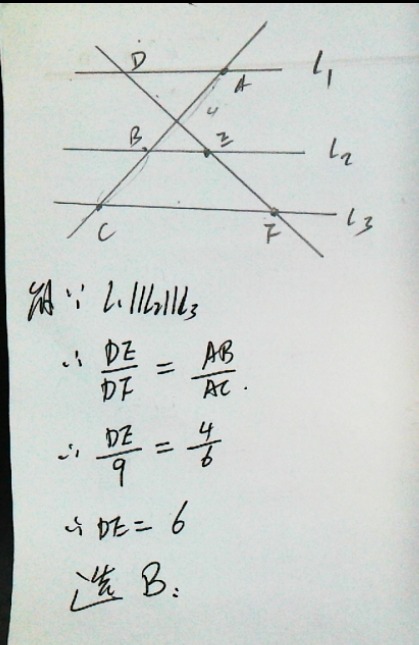 D A l₁
4
B E l₂
C F l₃
∵ l₁∥l₂∥l₃
∴ DE/DF = AB/AC.
∴ DE/9 = 4/6
∴ DE = 6
选 B.